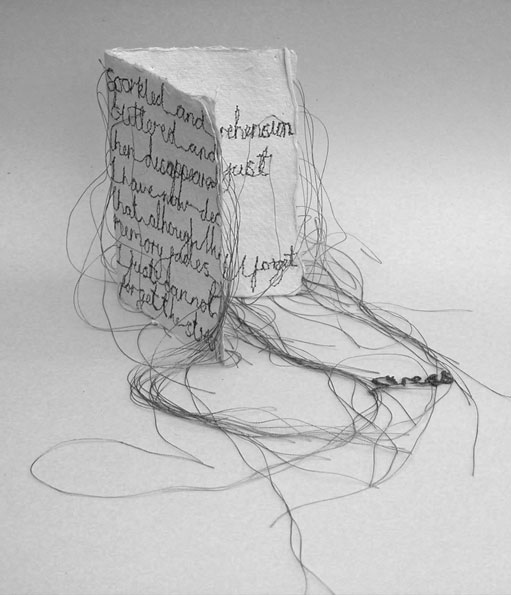 sparkled and
and
then disappeare
I have now dec
that although the
memory fades
I just cannot
forget the
rehension
just
forget